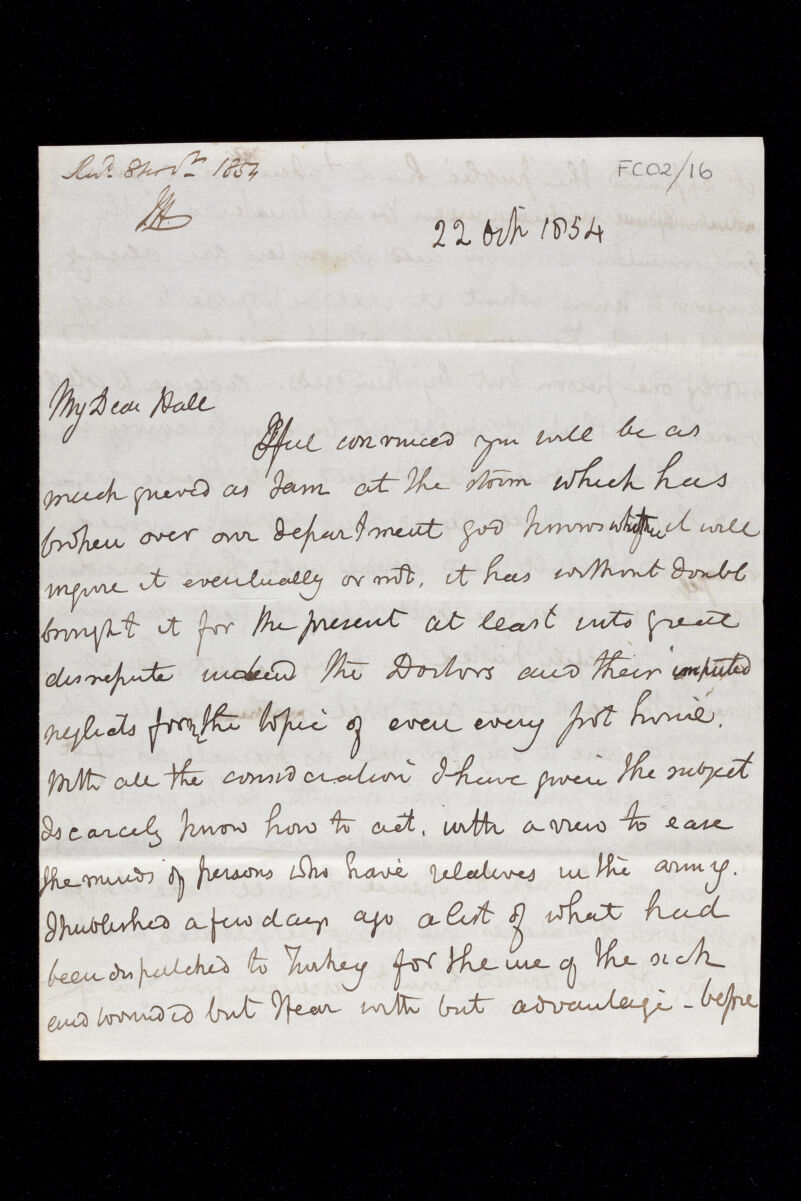 Recd. 8 Novr. 1854
FCO2/16
JH
22 Octr 1854
My Dear Hall
I feel convinced you will be as
much grieved as I am at the storm which has
broken over our department god knows whether it will
injure it eventually or not, it has without doubt
brought it for the present at least into great
disrepute indeed the Doctors and their imputed
neglects form the topic of even every pot house.
With all the consideration I have given the subject
I scarcely know how to act, with a view to ease
the minds of persons who have relatives in the army.
I published a few days ago a list of what had
been dispatched to Turkey for the use of the sick
and wounded but I fear with but advantage - before